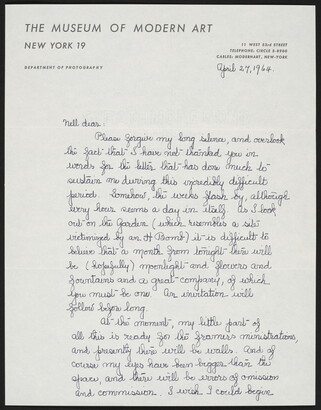 THE MUSEUM OF MODERN ART
NEW YORK 19
11 WEST 53rd STREET
TELEPHONE: CIRCLE 5-8900
CABLES: MODERNART, NEW-YORK
DEPARTMENT OF PHOTOGRAPHY
April 27, 1964.
Nell dear:
Please forgive my long silence, and overlook
the fact that I have not thanked you in
words for the letter that has done much to
sustain me during this incredibly difficult
period. Somehow, the weeks flash by, although
every hour seems a day in itself. As I look
out on the Garden (which resembles a site
victimized by an H Bomb) it is difficult to
believe that a month from tonight there will
be (hopefully) moonlight and flowers and
fountains and a great company, of which
you must be one. An invitation will
follow before long.
At the moment, my little part of
all this is ready for the framers ministrations,
and presently there will be walls. And of
course my eyes have been bigger than the
space, and there will be errors of omission
and commission. I wish I could begin